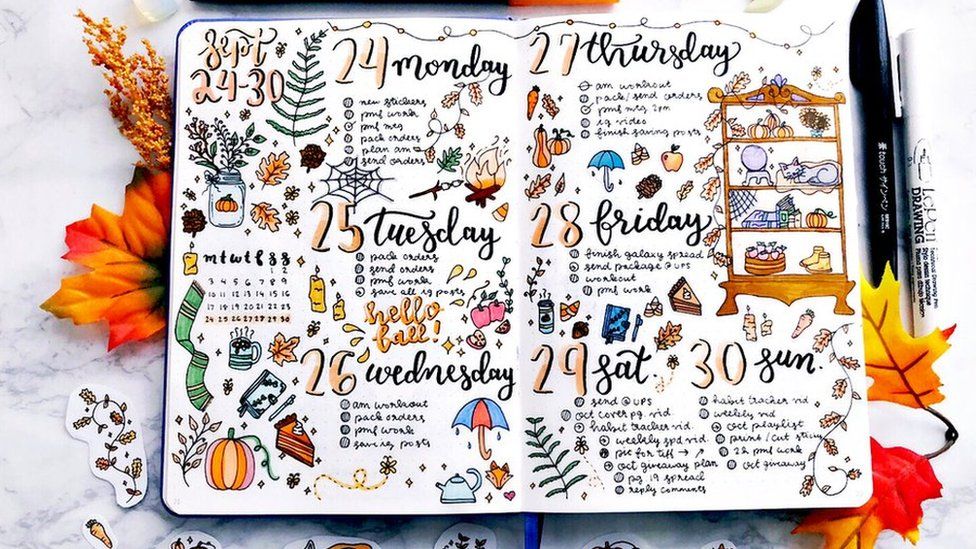 Sept
24-30
m t w t f s s
1 2
3 4 5 6 7 8 9
10 11 12 13 14 15 16
17 18 19 20 21 22 23
24 25 26 27 28 29 30
24 monday
new stickers
pmf work
pmf mtg
pack orders
plan am
send orders
25 Tuesday
pack orders
send orders
pmf work
save all ig posts
hello
fall!
26 wednesday
am workout
pack orders
pmf work
save ig posts
27 thursday
am workout
pack/send orders
pmf mtg 2pm
ig video
finish saving posts
28 friday
finish galaxy spread
send package @ UPS
workout
pmf work
29 sat.
send @ UPS
oct cover pg. vid.
habit tracker vid.
weekly spd vid.
pic for tiff → ↗
oct giveaway plan
pg 19 spread
reply comments
30 sun.
habit tracker vid
weekly vid
oct playlist
print/cut sticky
2h pmf work
oct giveaway
touch サインペン
DRAWING PEN